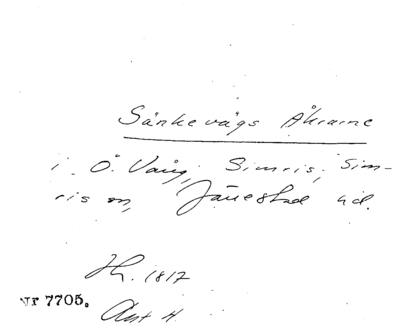 Sänkevägs Åkrarne
i Ö. Vång, Simris, Sim-
ris sn, Järrestad hd.
Hr. 1817
Nr 7705.
Akt 4.